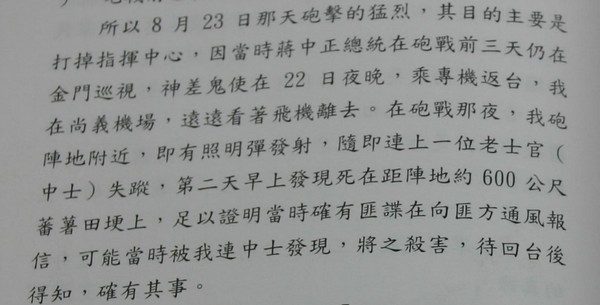 所以 8 月 23 日那天砲擊的猛烈，其目的主要是
打掉指揮中心，因當時蔣中正總統在砲戰前三天仍在
金門巡視，神差鬼使在 22 日夜晚，乘專機返台，我
在尚義機場，遠遠看著飛機離去。在砲戰那夜，我砲
陣地附近，即有照明彈發射，隨即連上一位老士官（
中士）失蹤，第二天早上發現死在距陣地約 600 公尺
蕃薯田埂上，足以證明當時確有匪諜在向匪方通風報
信，可能當時被我連中士發現，將之殺害，待回台後
得知，確有其事。